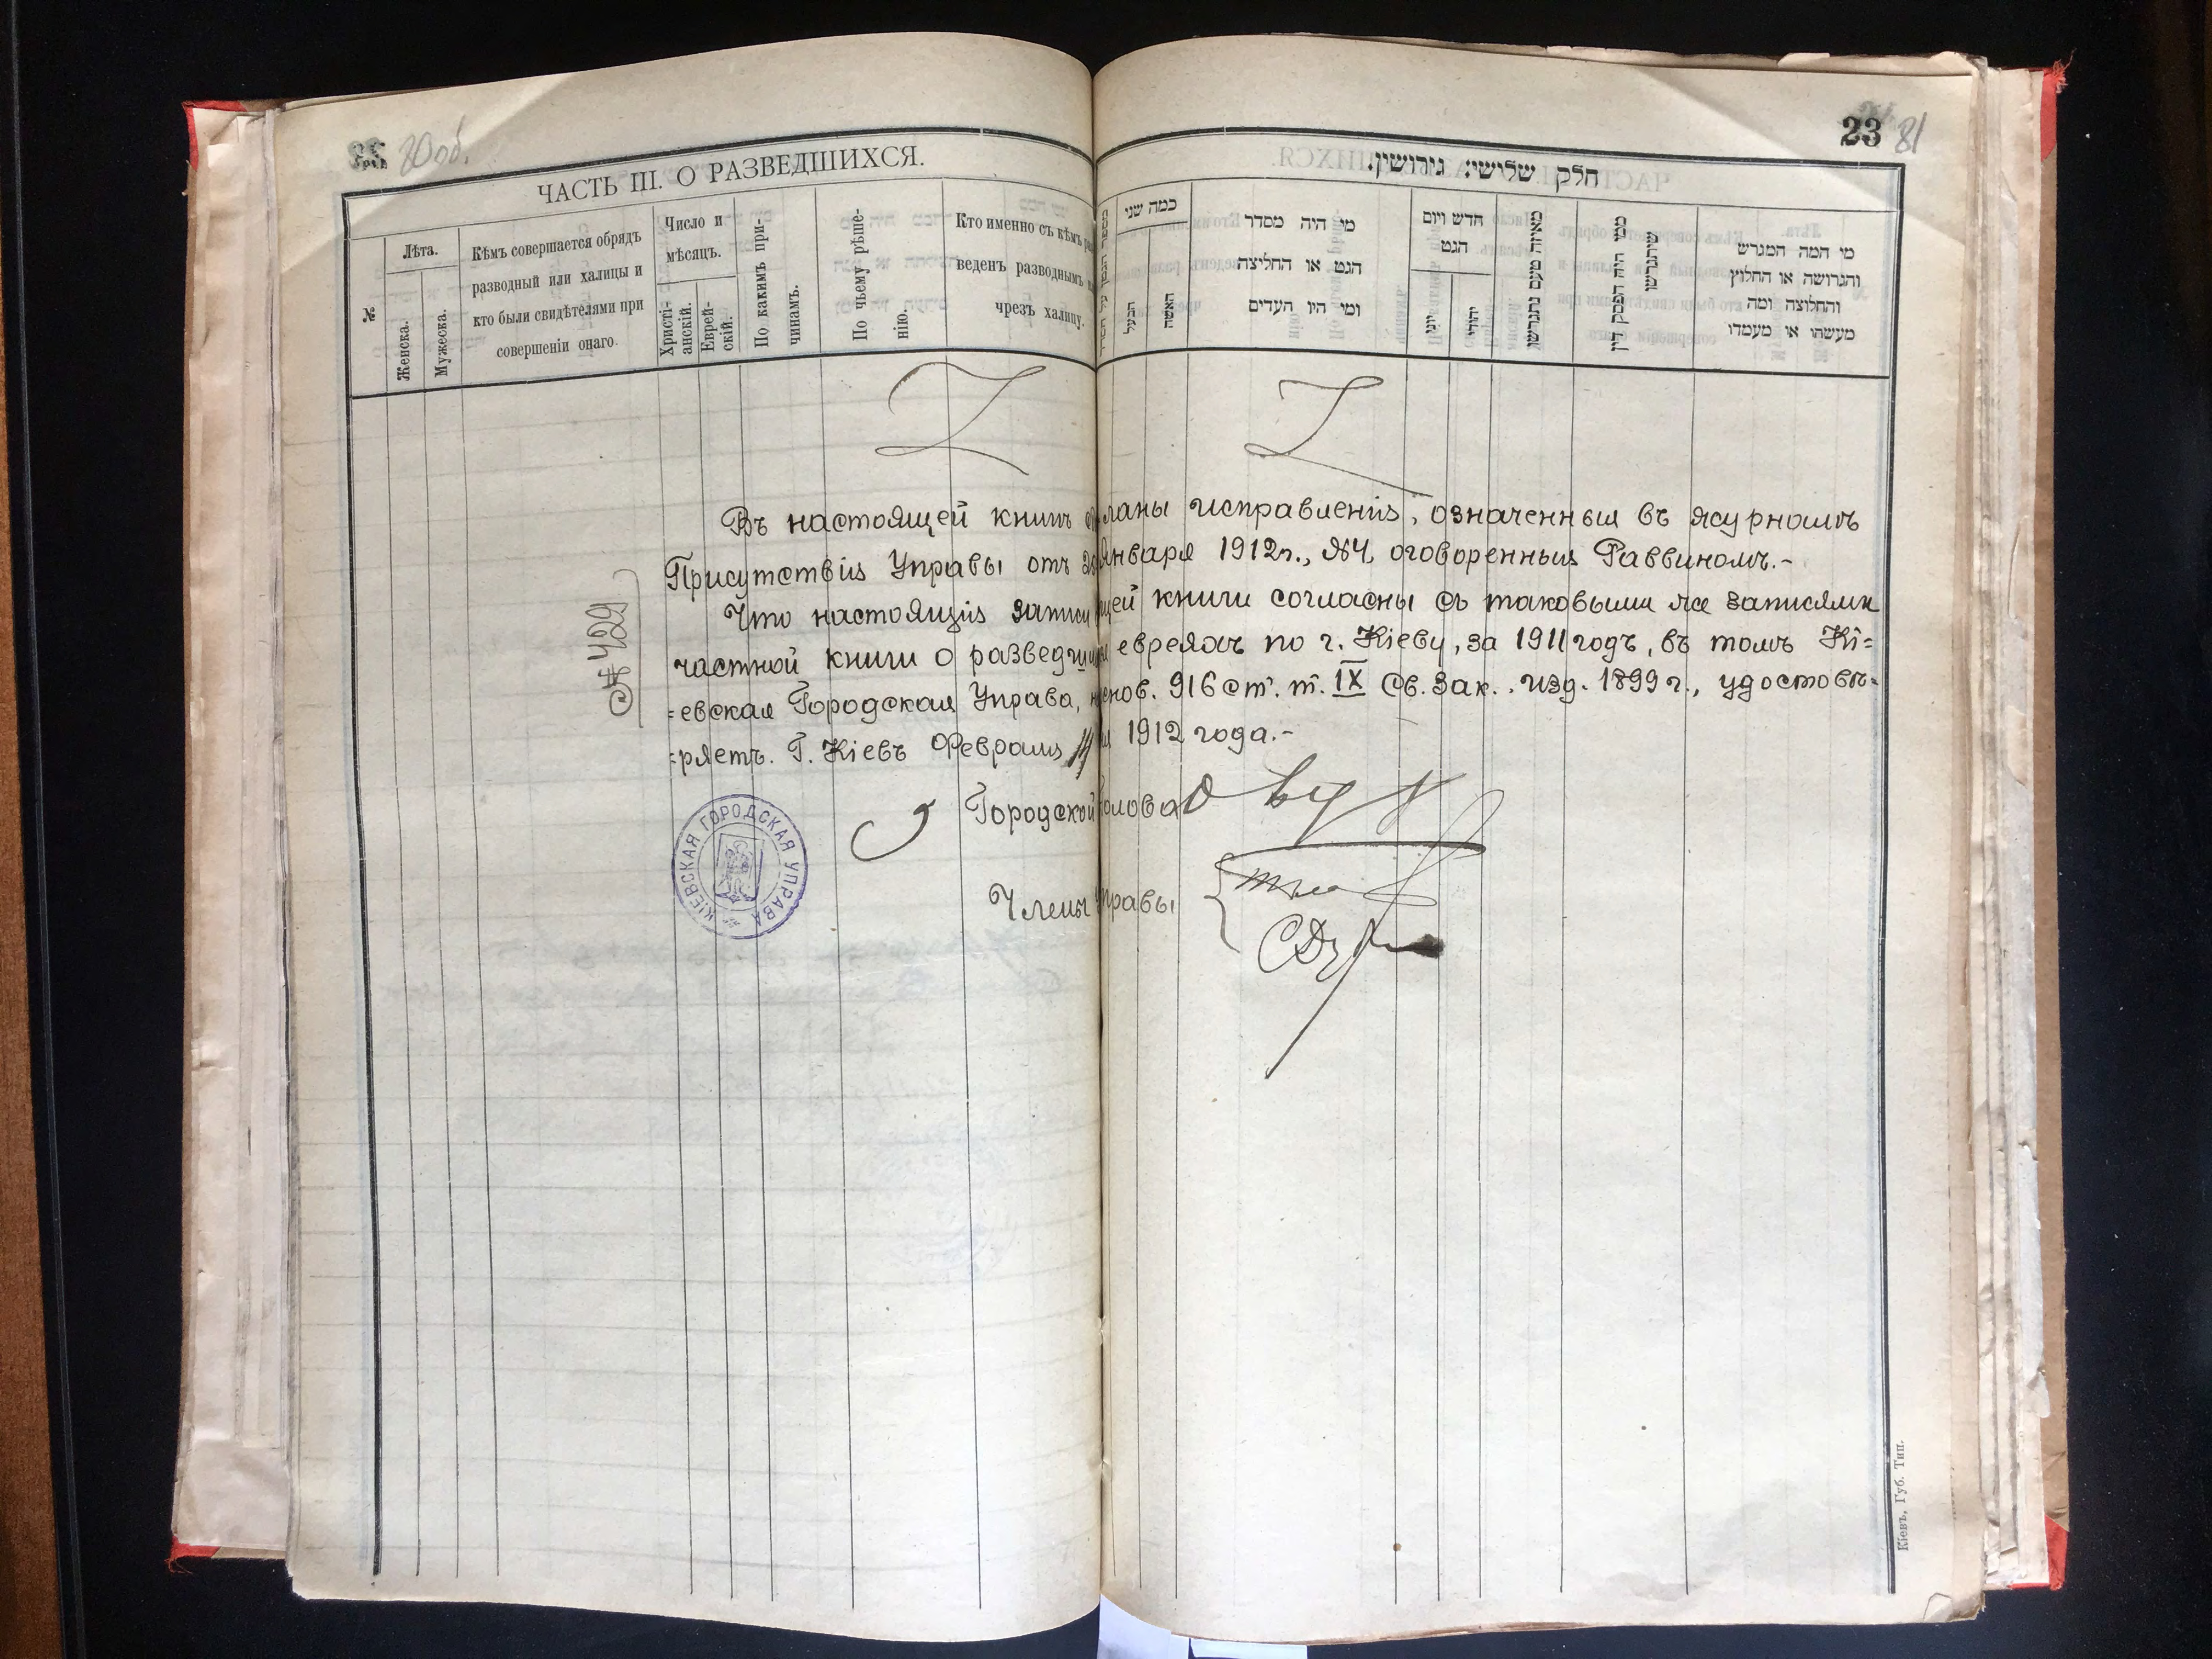 80об.
ЧАСТЬ III. О РАЗВЕДШИХСЯ.
№
Лѣта.
Женска.
Мужеска.
Кѣмъ совершается обрядъ
разводный или халицы и
кто были свидѣтелями при
совершеніи онаго.
Число и
мѣсяцъ.
Христі-
анскій.
Еврей-
скій.
По какимъ при-
чинамъ.
По чьему рѣше-
нію.
Кто именно съ кѣмъ
веденъ разводнымъ
чрезъ халицу.
23
81
חלק שלישי: גירושין.
כמה שני
הבעל
האשה
מי היה מסדר
הגט או החליצה
ומי היו העדים
חדש ויום
הגט
יוני
יהודי
מאיזה טעם נתגרשו
ממי היה הפסק דין
שיתגרשו
מי המה המגרש
והגרושה או החלוץ
והחלוצה ומה
מעשהו או מעמדו
Въ настоящей книгѣ ланы исправленія, означенныя въ журналѣ
Присутствія Управы отъ Января 1912г., №4, оговоренныя Раввиномъ.-
Что настоящія записи щей книги согласны съ таковыми же записями
частной книги о разведши евреяхъ по г. Кіеву, за 1911 годъ, въ томъ Кі=
=евская Городская Управа, основ. 916 ст. т. IX Св. Зак. изд. 1899 г., удостовѣ=
=ряетъ. Г. Кіевъ Февраля 1912 года.-
№ 429
Городской Голова
Члены Управы
КІЕВСКАЯ ГОРОДСКАЯ УПРАВА
Кіевъ, Губ. Тип.